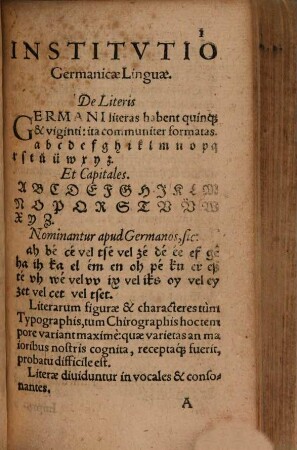 1
INSTITVTIO
Germanicæ Linguæ.
De Literis
GERMANI literas habent quinq́;
& viginti: ita communiter formatas.
a b c d e f g h i k l m n o p q
r s t u ü w x y z.
Et Capitales.
A B C D E F G H I K L M
N O P Q R S T V V W
X y Z.
Nominantur apud Germanos, sic:
ah bé cé vel tsé vel zé dé é ef gé
ha ih ka el em en oh pé
té vh wé vel vv ix vel iks oy vel ey
zet vel cet vel tset.
Literarum figuræ & characteres tùm
Typographis, tum Chirographis hoc tem
pore variant maximè: quæ varietas an ma
ioribus nostris cognita, receptaq́; fuerit,
probatu difficile est.
Literæ diuiduntur in vocales & conso-
nantes.
A